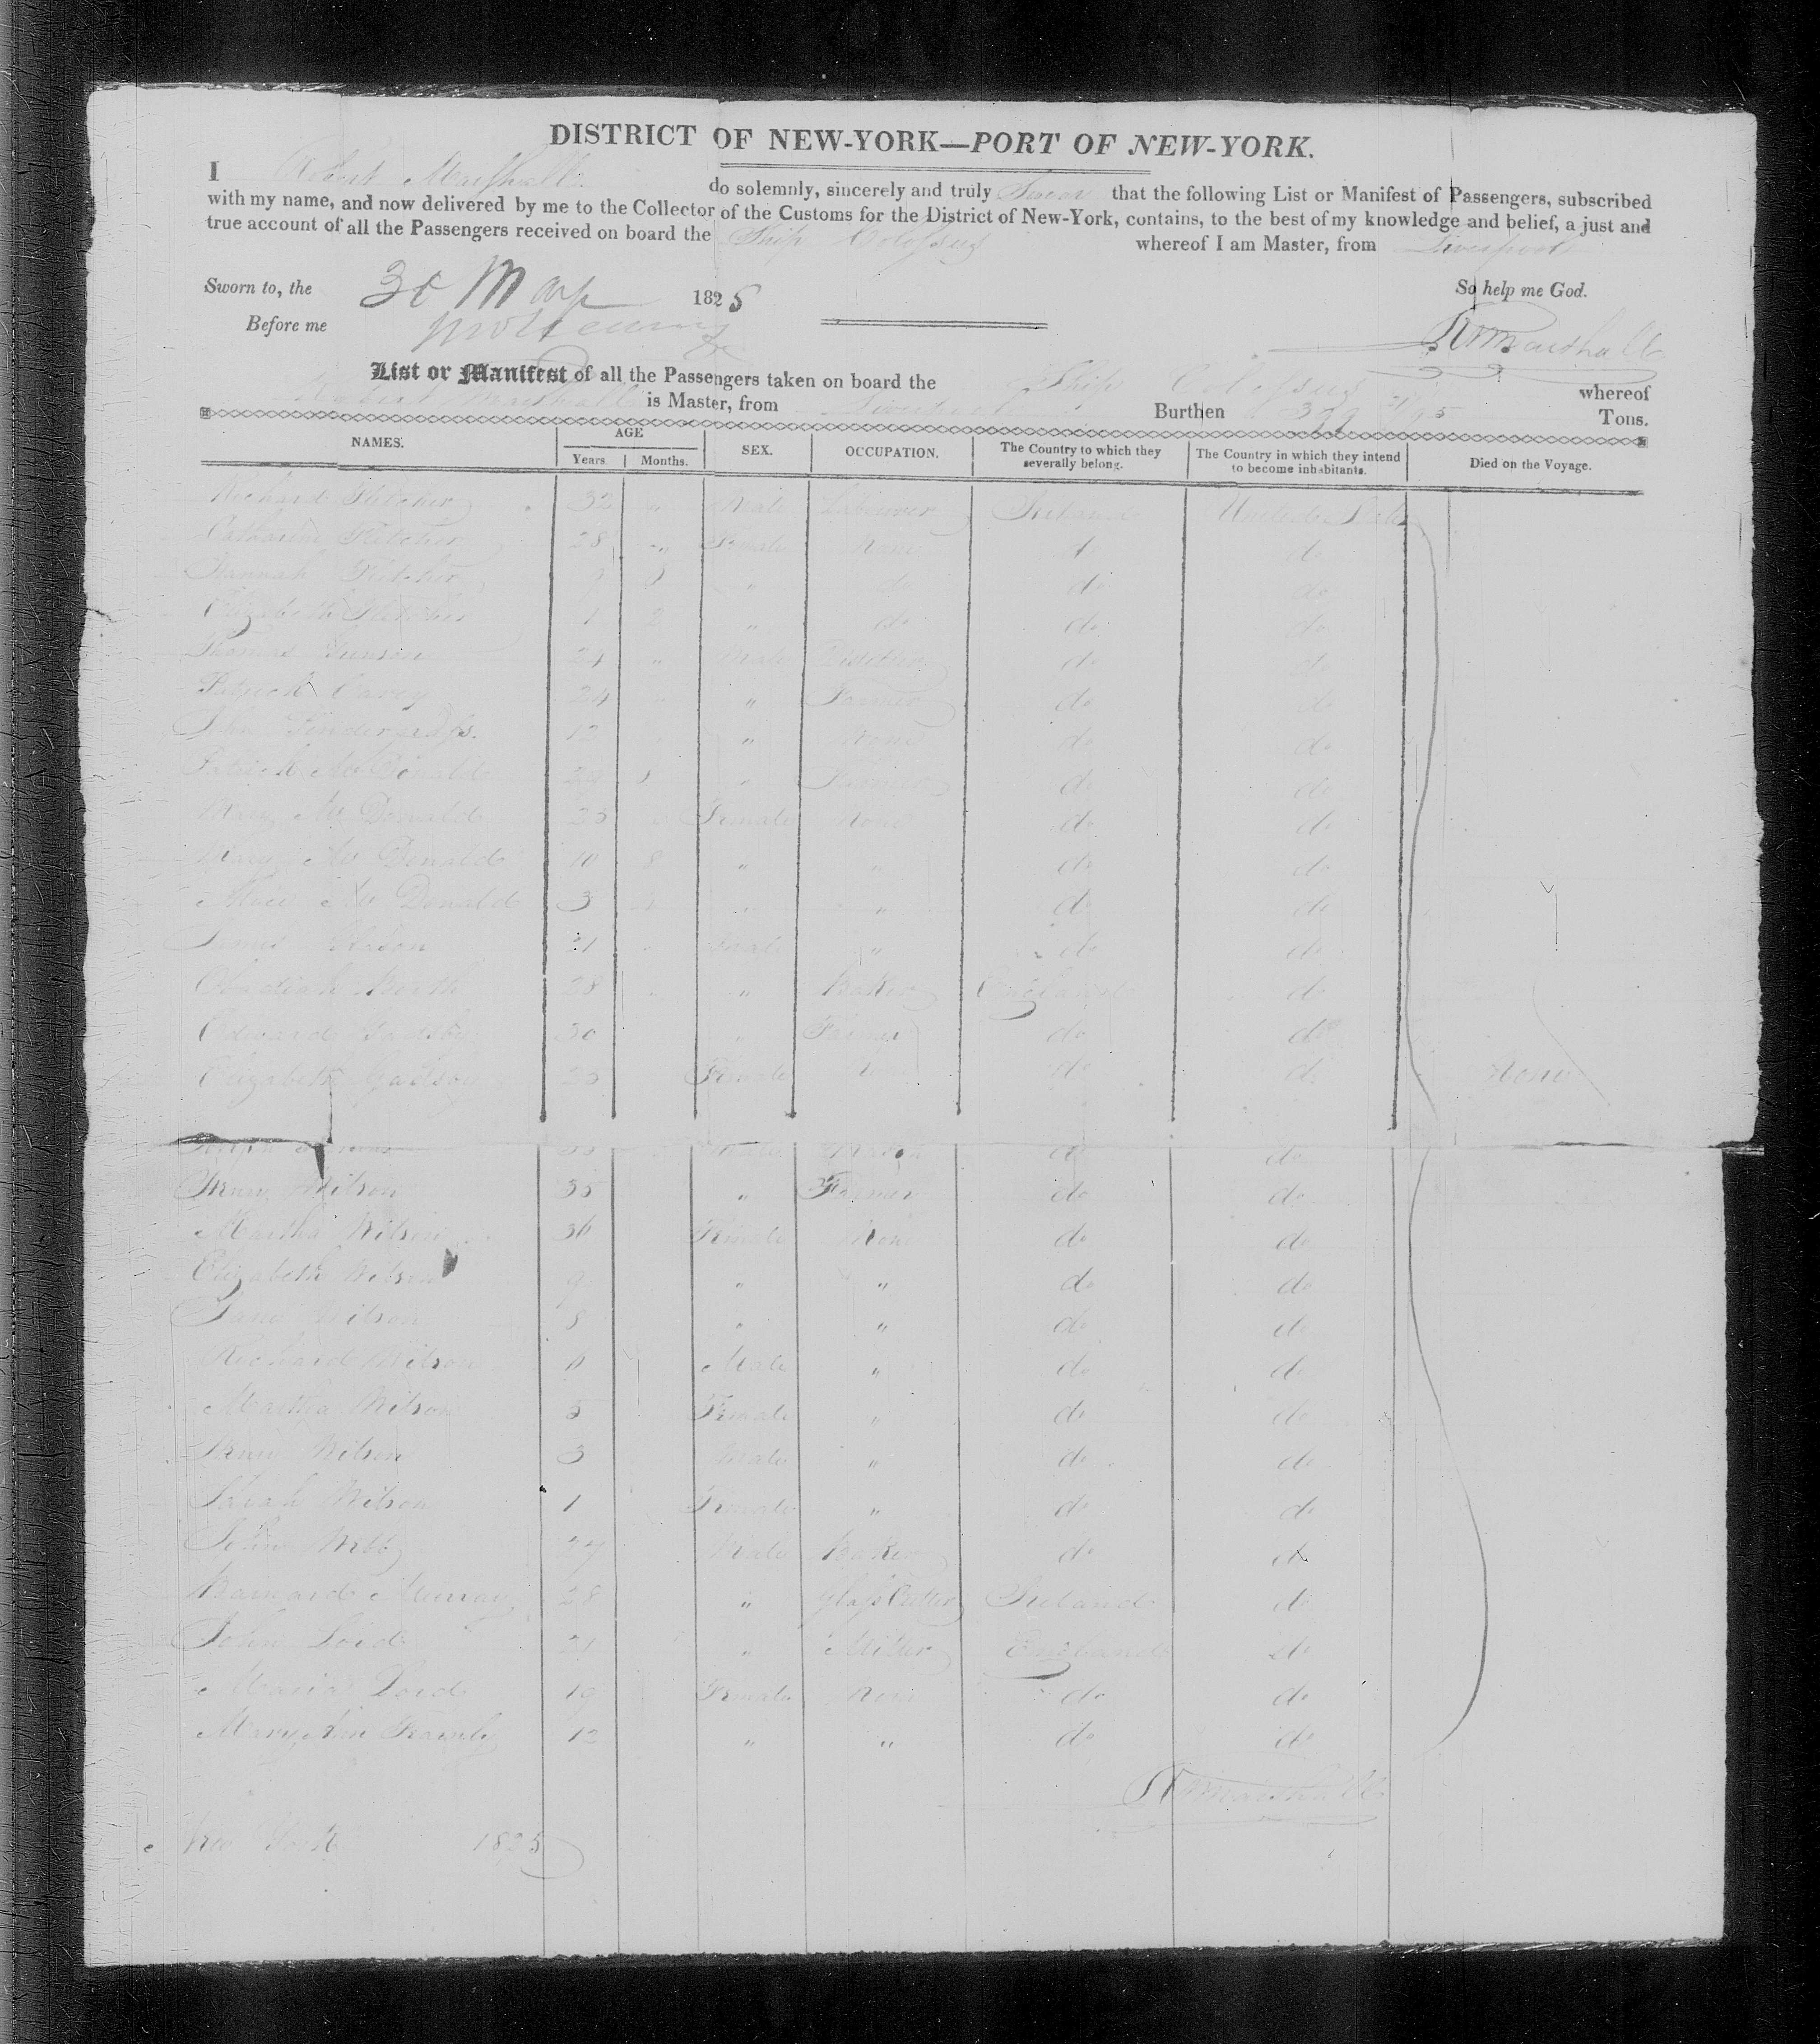 DISTRICT OF NEW-YORK—PORT OF NEW-YORK.
I Robert Marshall do solemnly, sincerely and truly Swear that the following List or Manifest of Passengers, subscribed
with my name, and now delivered by me to the Collector of the Customs for the District of New-York, contains, to the best of my knowledge and belief, a just and
true account of all the Passengers received on board the Ship Colossus whereof I am Master, from Liverpool
Sworn to, the 30 May 1825 So help me God.
Before me RMarshall
List or Manifest of all the Passengers taken on board the Ship Colossus whereof
Robert Marshall is Master, from Liverpool Burthen 399 /95 Tons.
NAMES. AGE Years. Months. SEX. OCCUPATION. The Country to which they severally belong. The Country in which they intend to become inhabitants. Died on the Voyage.
Richard Fletcher 32 " Male Labourer Ireland United States
Catharine Fletcher 28 " Female None do do
Hannah Fletcher " do do do
Elizabeth Fletcher 1 2 " do do do
Thomas 24 " Male do do
Patrick Carey 24 " " Farmer do do
John Pindergrass. 12 " None do do
Patrick McDonald " Farmer do do
Mary McDonald 25 " Female None do do
Mary McDonald 10 8 " " do do
McDonald 3 " " " do do
James 21 " Male " do do
Obadiah Booth 28 " " Baker England do
Edward 30 " Farmer do do
Elizabeth 25 Female None do do None
Joseph Male do do
Wilson 35 " Farmer do do
Martha Wilson 36 Female None do do
Elizabeth Wilson 9 " " do do
Jane Wilson 8 " " do do
Richard Wilson Male " do do
Martha Wilson 5 Female " do do
Wilson 3 Male " do do
Sarah Wilson 1 Female " do do
John Webb 27 Male Baker do do
Barnard Murray 28 " Glass Cutter Ireland do
John Lord 21 " Miller England do
Maria Lord 19 Female None do do
Mary Ann 12 " " do do
RMarshall
New York 1825